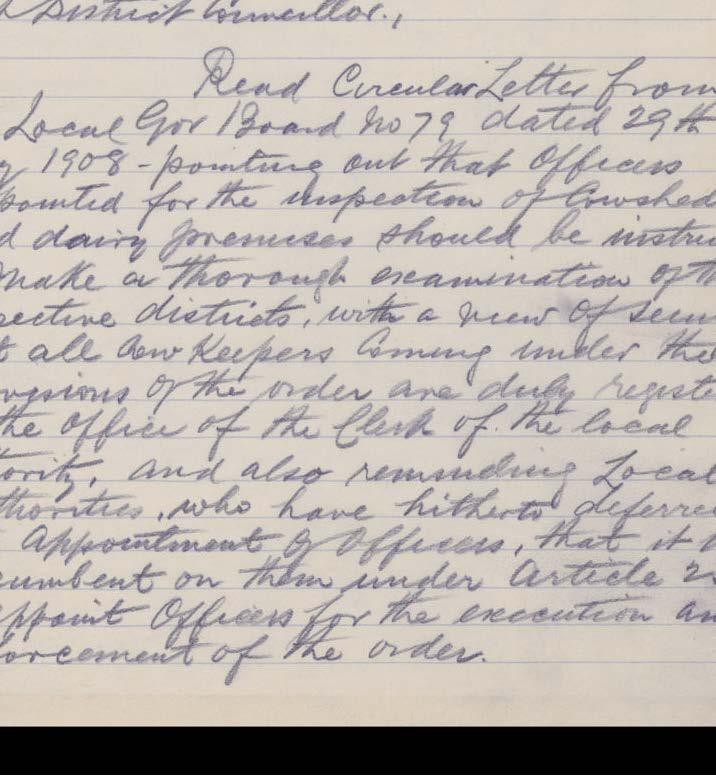 District Councillor.,
Read Circular Letter from
Local Gov Board No 79 dated 29th
1908 - pointing out that Officers
pointed for the inspection of Cowshed
d dairy premises should be instru
make a thorough examination of th
pective districts, with a view of secu
t all Cow Keepers Coming under the
visions of the order are duly registe
the Office of the Clerk of the local
ority, and also reminding Local
thorities, who have hitherto deferred
Appointment of Officers, that it
cumbent on them under Article 2
ppoint Officers for the execution an
orcement of the order.